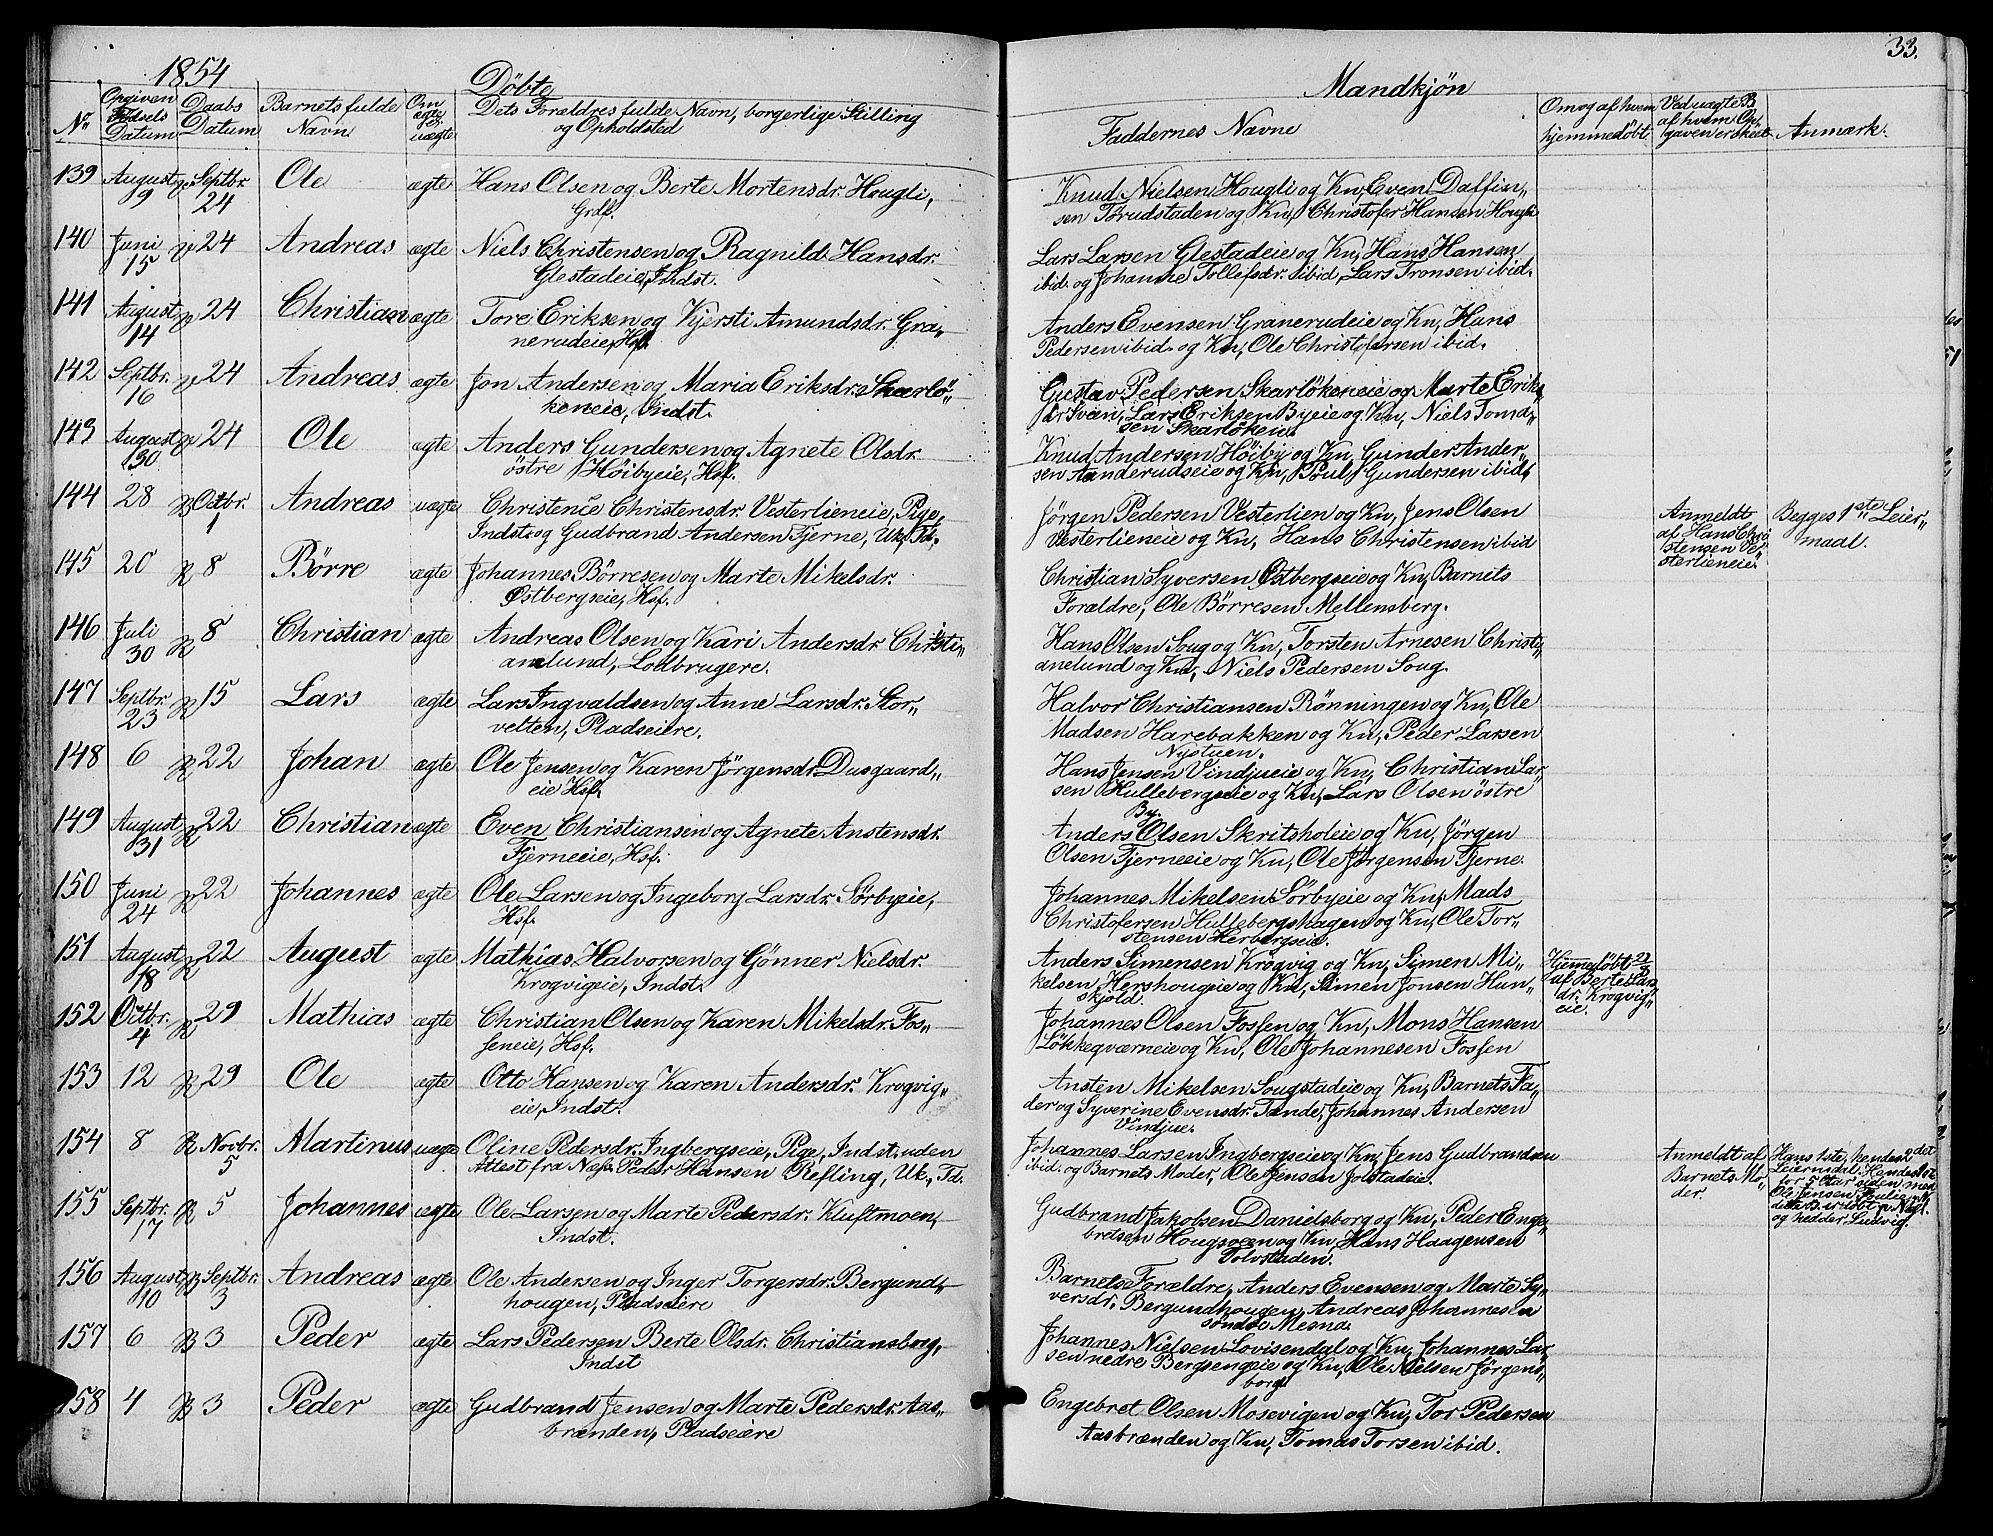 1854
Döbte
No
Opgiven Födsels Datum
Daabs Datum
Barnets fulde Navn
Om ægte el. uægte
Dets Forældres fulde Navn, borgerlige Stilling og Opholdsted
139 August 9 Septbr. 24 Ole ægte Hans Olsen og Berte Mortensdr. Hougli,
Grdf.
140 Juni 15 24 Andreas ægte Niels Christensen og Ragnild Hansdr.
Glestadeie, Indst.
141 August 14 24 Christian ægte Tore Eriksen og Kjersti Amundsdr. Gra„
nerudeie, Hsf.
142 Septbr. 16 24 Andreas ægte Jon Andersen og Maria Eriksdr. Skarlö„
keneie, Indst.
143 August 30 24 Ole ægte Anders Gundersen og Agnete Olsdr.
östre Höibyeie, Hsf.
144 28 Octbr. 1 Andreas uægte Christence Christensdr. Vesterlieneie, Pige,
Indst. og Gudbrand Andersen Tjerne, Uk. Td.
145 20 8 Börre ægte Johannes Börresen og Marte Mikelsdr.
Ostbergseie, Hsf.
146 Juli 30 8 Christian ægte Andreas Olsen og Kari Andersdr. Christi„
anelund, Lodbrugere.
147 Septbr. 23 15 Lars ægte Lars Ingvaldsen og Anne Larsdr. Stor„
velten, Pladseiere.
148 6 22 Johan ægte Ole Jensen og Karen Jörgensdr. Dusgaard„
eie Hsf.
149 August 31 22 Christian ægte Even Christiansen og Agnete Anstensdr.
Tjerneeie, Hsf.
150 Juni 24 22 Johannes ægte Ole Larsen og Ingeborg Larsdr. Sörbyeie,
Hsf.
151 August 18 22 August ægte Mathias Halvorsen og Gönner Nielsdr.
Krogvigeie, Indst.
152 Octbr. 4 29 Mathias ægte Christian Olsen og Karen Mikelsdr. Fos„
seneie, Hsf.
153 12 29 Ole ægte Otto Hansen og Karen Andersdr. Krogvig„
eie, Indst.
154 8 Novbr. 5 Martinus uægte Oline Pedersdr. Ingbergseie, Pige, Indst. uden
Attest fra Næs. Peder Hansen Refling, Uk., Td.
155 Septbr. 17 5 Johannes ægte Ole Larsen og Marte Pedersdr. Kluftmoen,
Indst.
156 August 10 Septbr. 3 Andreas ægte Ole Andersen og Inger Torgersdr. Bergund„
hougen, Pladseiere
157 6 3 Peder ægte Lars Pedersen Berte Olsdr. Christiansborg,
Indst
158 4 3 Peder ægte Gudbrand Jensen og Marte Pedersdr. Aas„
brænden, Pladseiere
33.
Mandkjön
Faddernes Navne
Om og af hvem hjemmedöbt
Ved uægte B. af hvem Opgaven er skeet
Anmærk.
Knud Nielsen Hougli og Kn, Even Daffin„
sen Torudstaden og Kn, Christofer Hansen Hougli
Lars Larsen Glestadeie og Kn, Hans Hansen
ibid. og Johanne Tollefsdr. ibid, Lars Tronsen ibid.
Anders Evensen Granerudeie og Kn, Hans
Pedersen ibid. og Kn, Ole Christofersen ibid.
Gustav Pedersen Skarlökeneie og Marte Eriks„
dr. Svan, Lars Eriksen Byeie og Kn, Niels Toma„
sen Skarlökeie.
Knud Andersen Höiby og Kn, Gunder Ander„
sen Aanderudseie og Kn, Poul Gundersen ibid.
Jörgen Pedersen Vesterlien og Kn, Jens Olsen
Vesterlieneie og Kn, Hans Christensen ibid
Anmeldt
af Hans Chri
stensen Ve„
sterlieneie.
Begges 1ste Leier„
maal.
Christian Syversen Ostbergseie og Kn, Barnets
Forældre, Ole Börresen Mellensberg.
Hans Olsen Soug og Kn, Torsten Arnesen Christi„
anelund og Kn, Niels Pedersen Soug.
Halvor Christiansen Rönningen og Kn, Ole
Madsen Harebakken og Kn, Peder Larsen
Nystuen.
Hans Jensen Vindjueie og Kn, Christian Lar„
sen Hullebergseie og Kn, Lars Olsen östre
By.
Anders Olsen Skritsholeie og Kn, Jörgen
Olsen Tjerneeie og Kn, Ole Jörgensen Tjerne.
Johannes Mikelsen Sörbyeie og Kn, Mads
Christofersen Hullebergshagen og Kn, Ole Tor„
stensen Herbergseie.
Anders Simensen Krogvig og Kn, Simen Mi„
kelsen Hershougeie og Kn, Simen Jonsen Hun„
skjold.
Hjemedöbt
af Berte Lars
dr. Krogvig„
eie.
Johannes Olsen Fossen og Kn, Mons Hansen
Lökkeqværneie og Kn, Ole Johannesen Fossen
Ansten Mikelsen Sougstadeie og Kn, Barnets Fa„
der og Syverine Evensdr. Tande, Johannes Andersen
Vindjue.
Johannes Larsen Ingbergseie og Kn, Jens Gudbrandsen
ibid. og Barnets Moder, Ole Jensen Jolstadeie.
Anmeldt af
Barnets Mo„
der.
Hans 1ste, hendes 2det
Leiermaal. Hendes 1st
for 5 Aar siden med
Ole Jensen
dette B. er döbt
og hedder Ludvig.
Gudbrand Jakobsen Danielsborg og Kn, Peder Enge„
bretsen Hougsveen og Kn, Hans Haagensen
Tolvstaden.
Barnets Forældre, Anders Evensen og Marte Sy„
versdr. Bergundhougen, Andreas Johannesen
söndre Mesna.
Johannes Nielsen Lovisendal og Kn, Johannes Lar„
sen nedre Bergsengeie og Kn, Ole Nielsen Jörgens„
borg
Engebret Olsen Mosevigen og Kn, Tor Pedersen
Aasbrænden og Kn, Tomas Torsen ibid.